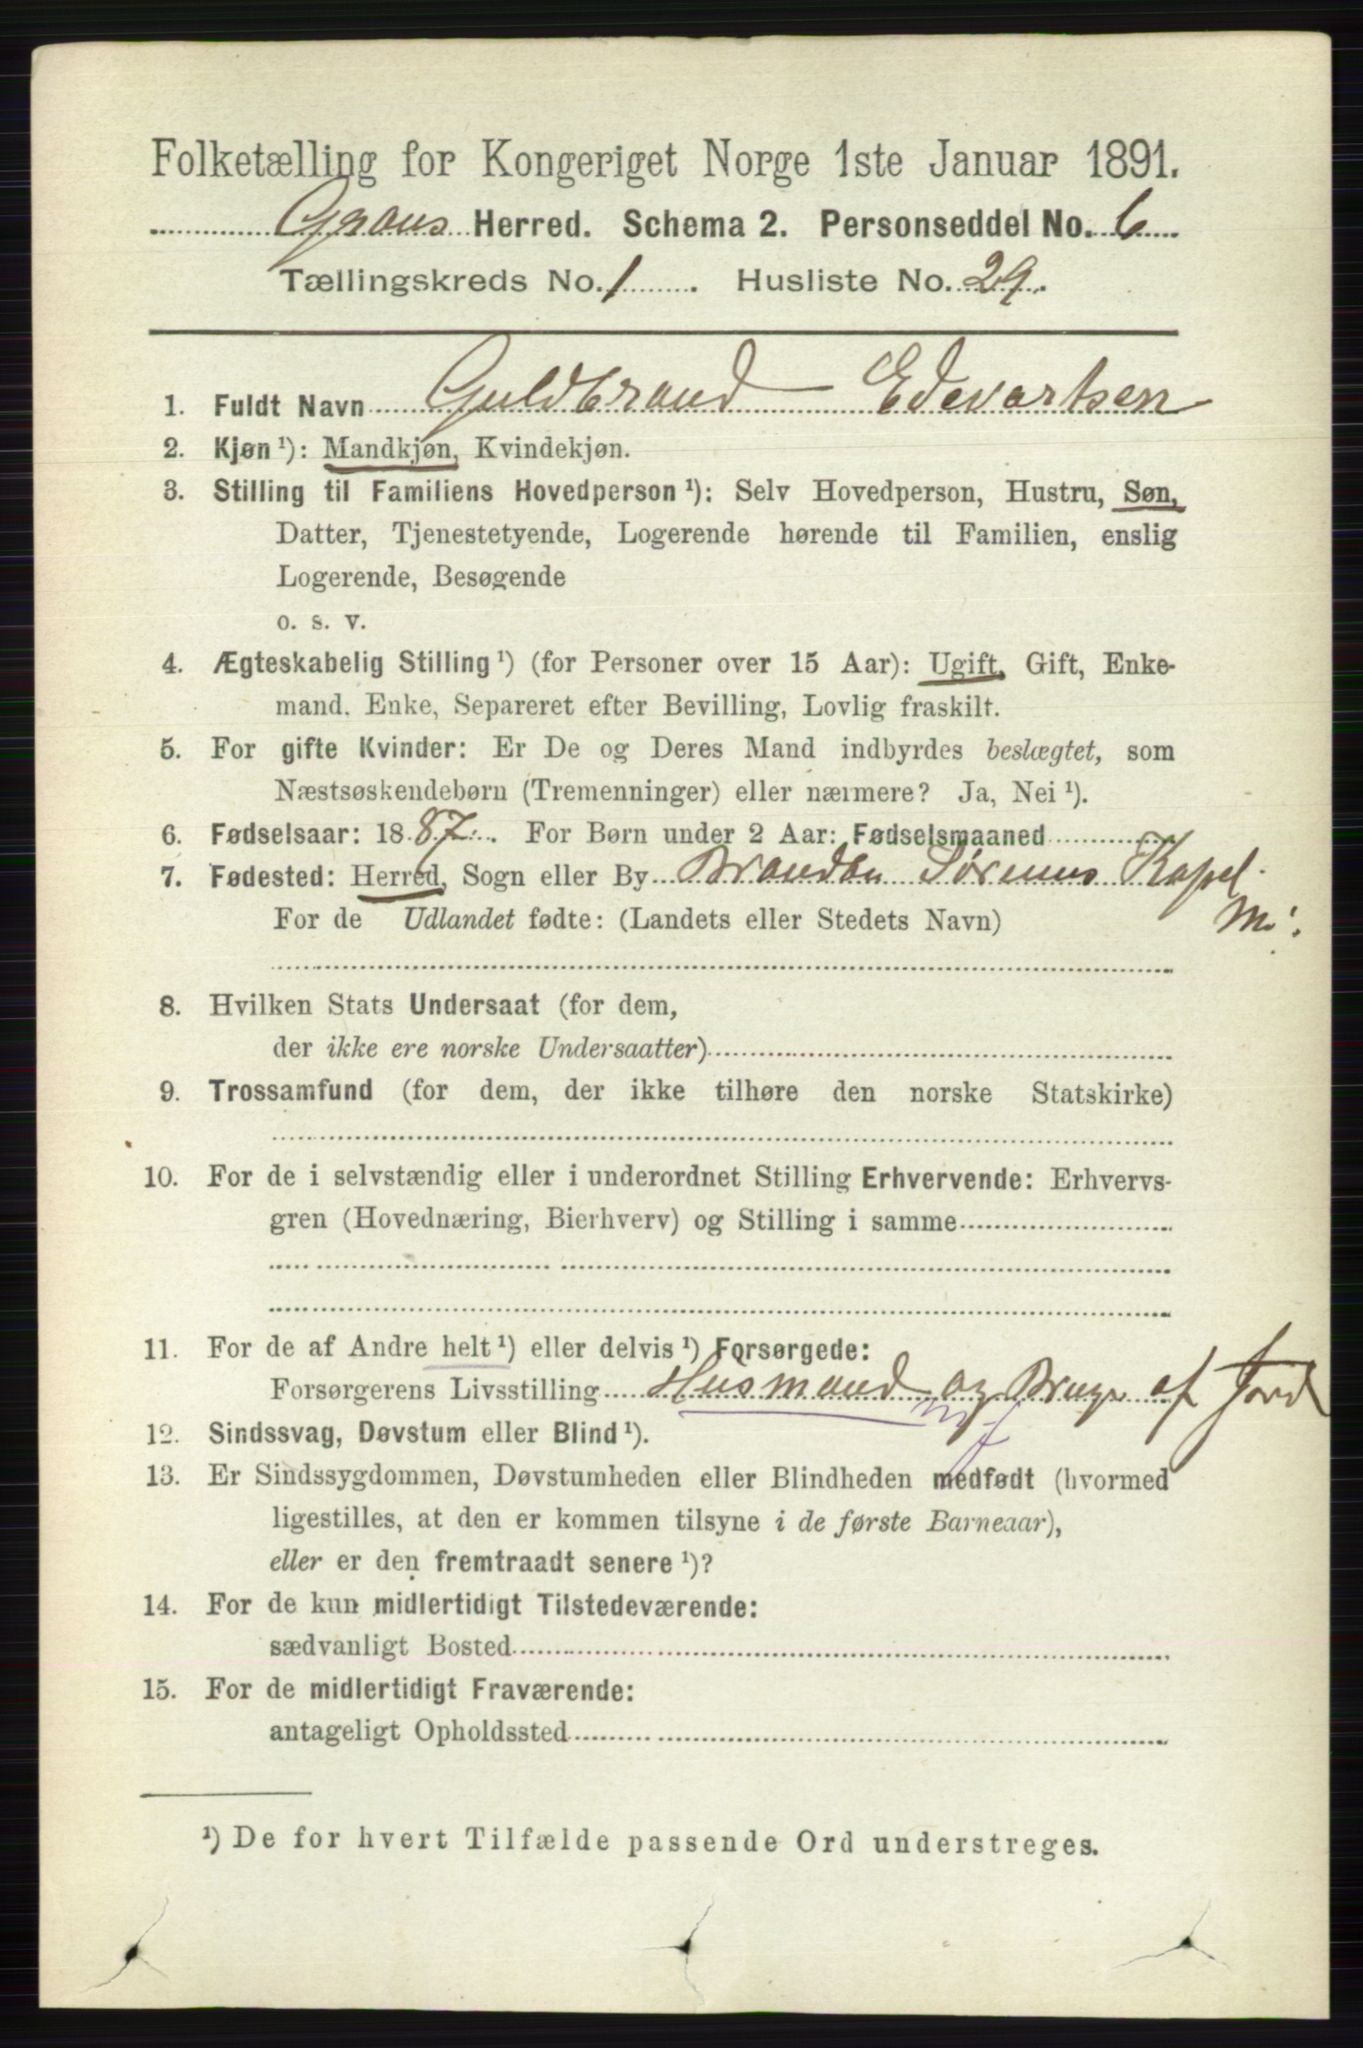 Folketælling for Kongeriget Norge 1ste Januar 1891.
Grans Herred. Schema 2. Personseddel No. 6
Tællingskreds No. 1. Husliste No. 29.
1. Fuldt Navn Guldbrand Edevartsen
2. Kjøn ¹): Mandkjøn, Kvindekjøn.
3. Stilling til Familiens Hovedperson ¹): Selv Hovedperson, Hustru, Søn,
Datter, Tjenestetyende, Logerende hørende til Familien, enslig
Logerende, Besøgende
o. s. v.
4. Ægteskabelig Stilling ¹) (for Personer over 15 Aar): Ugift, Gift, Enke-
mand, Enke, Separeret efter Bevilling, Lovlig fraskilt.
5. For gifte Kvinder: Er De og Deres Mand indbyrdes beslægtet, som
Næstsøskendebørn (Tremenninger) eller nærmere? Ja, Nei ¹).
6. Fødselsaar: 1887. For Børn under 2 Aar: Fødselsmaaned
7. Fødested: Herred, Sogn eller By Brandbu Sørums Kapel.
For de Udlandet fødte: (Landets eller Stedets Navn)
8. Hvilken Stats Undersaat (for dem,
der ikke ere norske Undersaatter)
9. Trossamfund (for dem, der ikke tilhøre den norske Statskirke)
10. For de i selvstændig eller i underordnet Stilling Erhvervende: Erhvervs-
gren (Hovednæring, Bierhverv) og Stilling i samme
11. For de af Andre helt ¹) eller delvis ¹) Forsørgede:
Forsørgerens Livsstilling Husmand og Bruger af Jord
12. Sindssvag, Døvstum eller Blind ¹).
13. Er Sindssygdommen, Døvstumheden eller Blindheden medfødt (hvormed
ligestilles, at den er kommen tilsyne i de første Barneaar),
eller er den fremtraadt senere ¹)?
14. For de kun midlertidigt Tilstedeværende:
sædvanligt Bosted
15. For de midlertidigt Fraværende:
antageligt Opholdssted
¹) De for hvert Tilfælde passende Ord understreges.